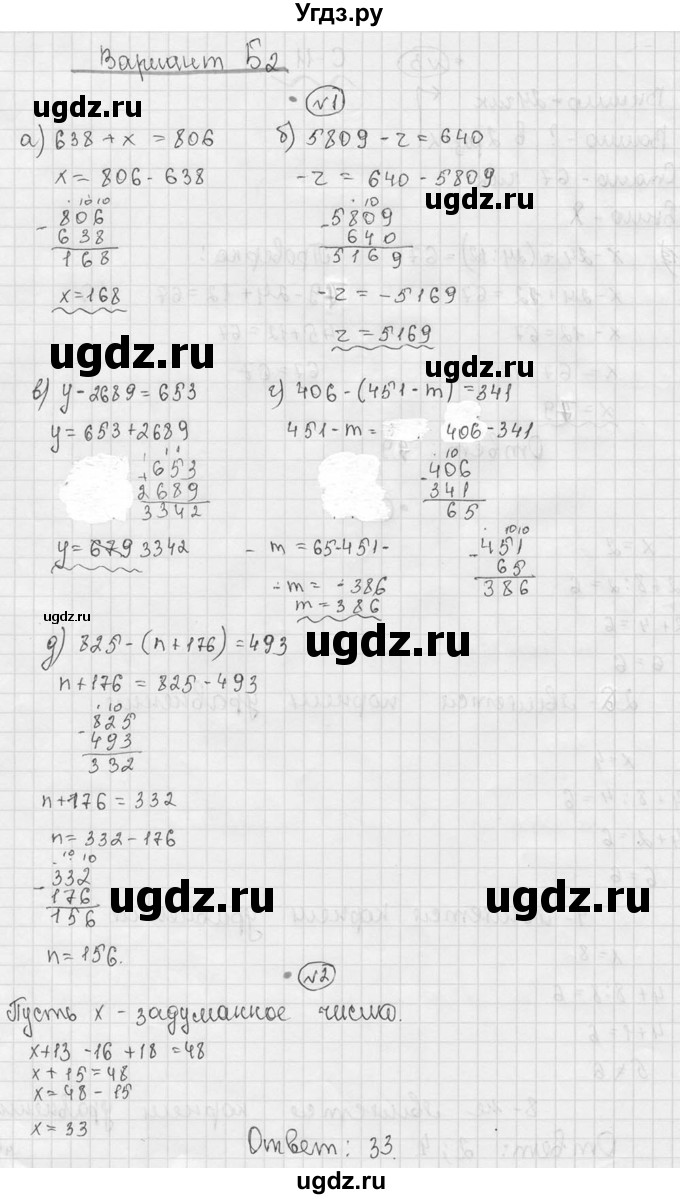 Угдз.ру
Вариант Б2
№1
а) 638 + x = 806
x = 806 - 638
10 10
- 806
638
168
x = 168
б) 5809 - z = 640
-z = 640 - 5809
10
- 5809
640
5169
-z = -5169
z = 5169
в) y - 2689 = 653
y = 653 + 2689
1 1 1
+ 653
2689
3342
y = 679 3342
г) 406 - (451 - m) = 341
451 - m = 406 - 341
10
- 406
341
65
- m = 65 - 451 -
- m = - 386
m = 386
10 10
- 451
65
386
д) 825 - (n + 176) = 493
n + 176 = 825 - 493
10
- 825
493
332
n + 176 = 332
n = 332 - 176
10 10
- 332
176
156
n = 156.
№2
Пусть x - задуманное число.
x + 13 - 16 + 18 = 48
x + 15 = 48
x = 48 - 15
x = 33
Ответ: 33.
ugdz.ru
ugdz.ru
ugdz.ru
ugdz.ru
ugdz.ru
ugdz.ru
ugdz.ru
ugdz.ru
ugdz.ru
ugdz.ru
ugdz.ru